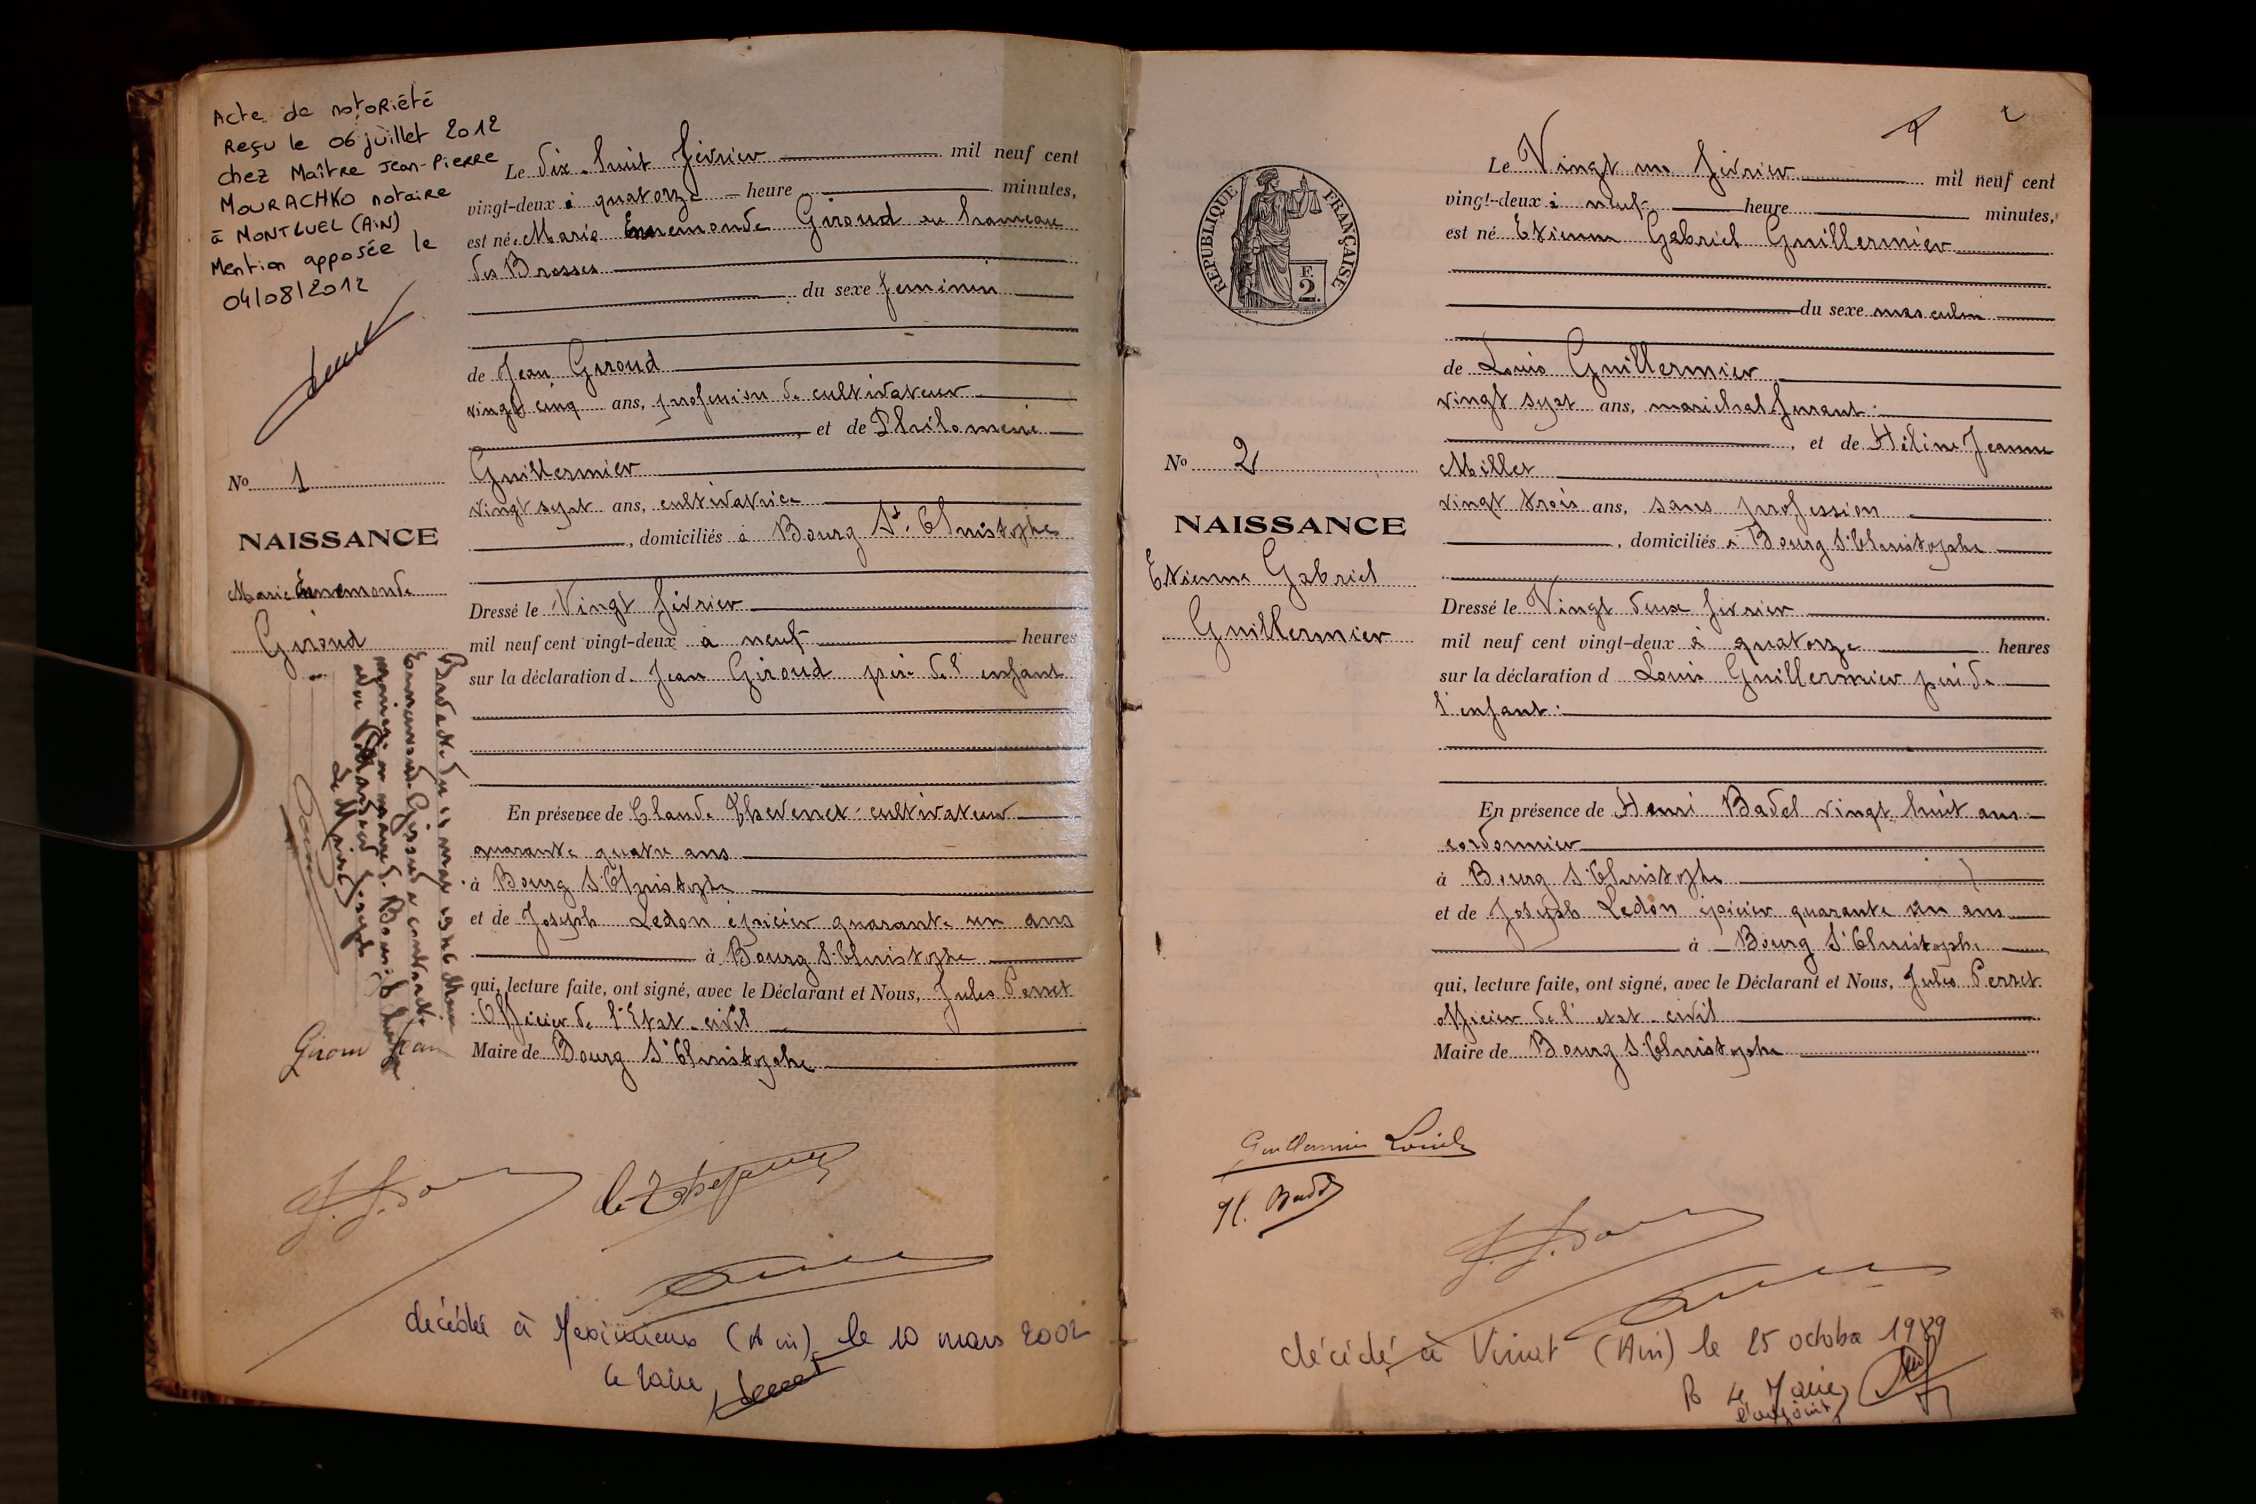 Acte de notoriété
Reçu le 06 juillet 2012
chez Maître Jean-Pierre
MOURACHKO notaire
à MONTLUEL (AiN)
Mention apposée le
04/08/2012
No 1
NAISSANCE
Marie Ennemonde
Giroud
Le dix-huit février mil neuf cent
vingt-deux à quatorze heure minutes,
est né Marie Ennemonde Giroud au hameau
des Brosses
du sexe feminin
de Jean Giroud
vingt cinq ans, profession de cultivateur
, et de Philomène
Guillermier
vingt sept ans, cultivatrice
, domiciliés à Bourg St. Christophe
Dressé le Vingt février
mil neuf cent vingt-deux à neuf heures
sur la déclaration d. Jean Giroud père de l'enfant
En présence de Claude Thevenet cultivateur
quarante quatre ans
à Bourg St Christophe
et de Joseph Ledon épicier quarante un ans
à Bourg St Christophe
qui, lecture faite, ont signé, avec le Déclarant et Nous, Jules Perret
Officier de l'Etat-civil
Maire de Bourg St Christophe
Marie
Ennemonde Giroud a contracté
mariage en mairie de
avec Joseph
Le Maire
Giroud Jean
décédée à Meximieux (Ain) le 10 mars 2002
le Maire
2
RÉPUBLIQUE FRANÇAISE
F.
2
No 2
NAISSANCE
Etienne Gabriel
Guillermier
Le Vingt un février mil neuf cent
vingt-deux à neuf heure minutes,
est né Etienne Gabriel Guillermier
du sexe masculin
de Louis Guillermier
vingt sept ans, maréchal ferrant
, et de Hélène Jeanne
Millet
vingt trois ans, sans profession
, domiciliés à Bourg St Christophe
Dressé le Vingt deux février
mil neuf cent vingt-deux à quatorze heures
sur la déclaration d Louis Guillermier père de
l'enfant
En présence de Henri Badel vingt huit ans
cordonnier
à Bourg St Christophe
et de Joseph Ledon épicier quarante un ans
à Bourg St Christophe
qui, lecture faite, ont signé, avec le Déclarant et Nous, Jules Perret
officier de l'etat-civil
Maire de Bourg St Christophe
Guillermier Louis
H. Badel
décédé à Viriat (Ain) le 25 octobre 1989
Po Le Maire
l'adjoint